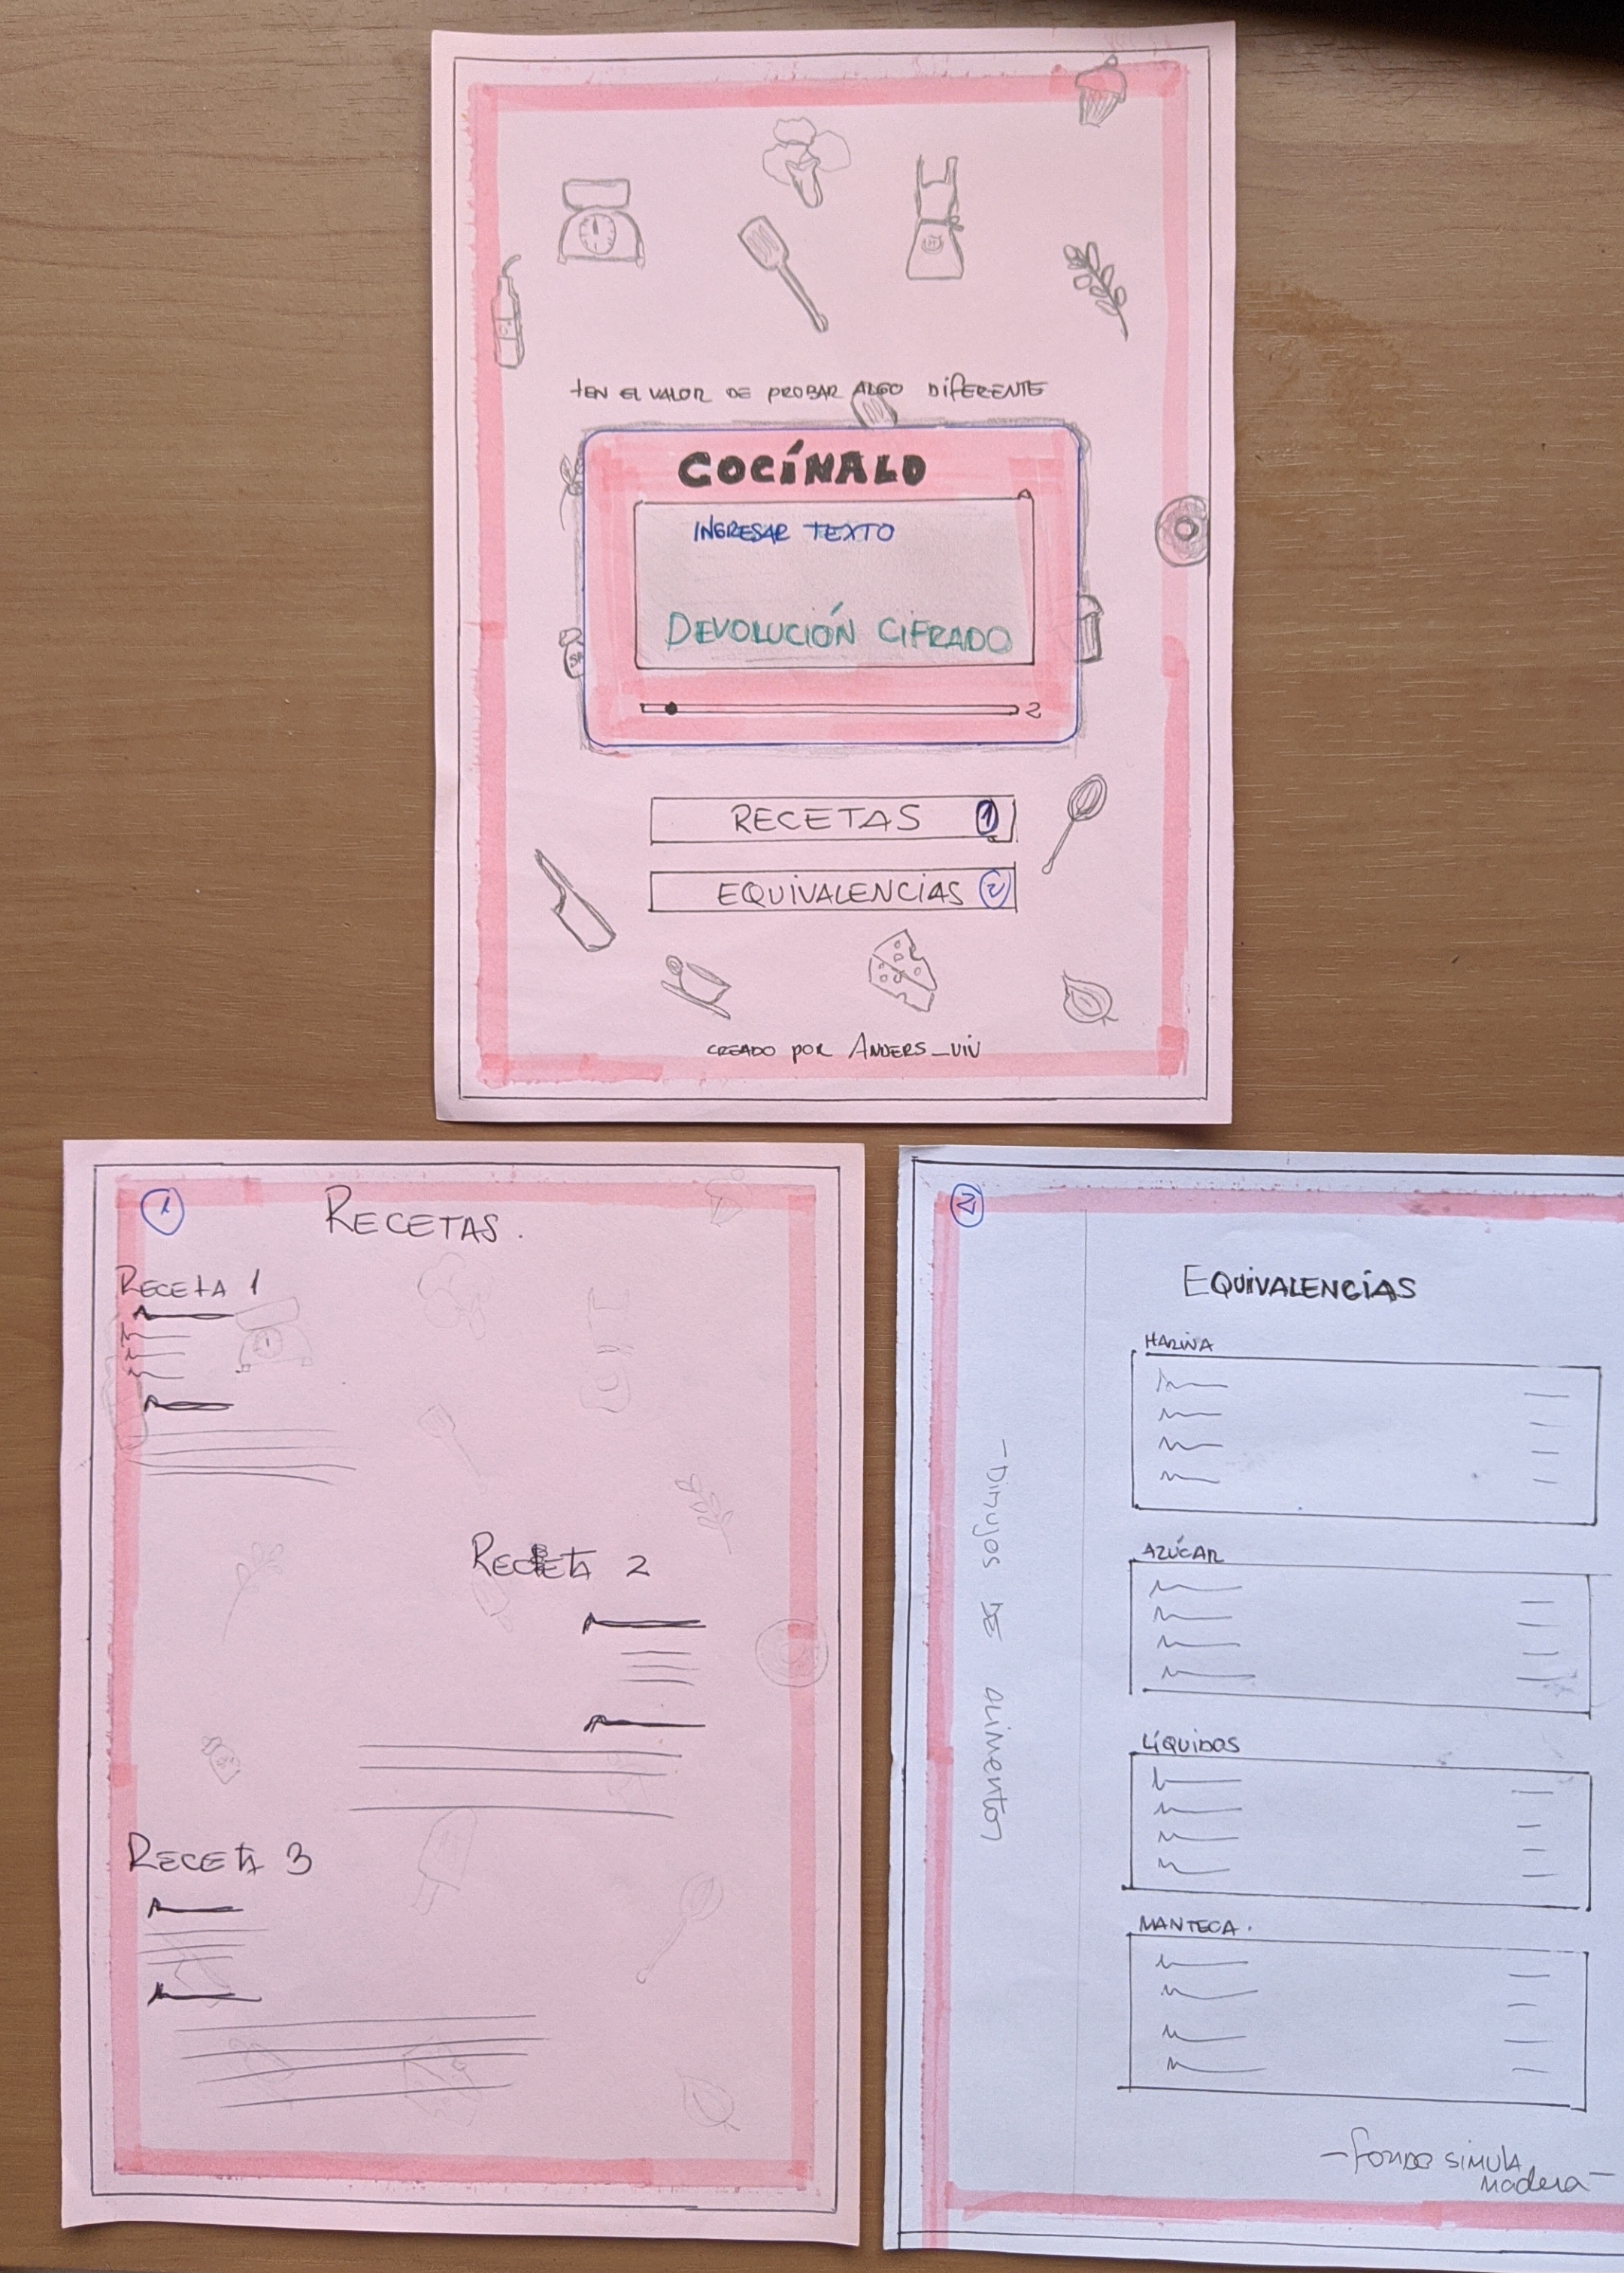 TEN EL VALOR DE PROBAR ALGO DIFERENTE
COCÍNALO
INGRESAR TEXTO
DEVOLUCIÓN CIFRADO
2
RECETAS 1
EQUIVALENCIAS 2
CREADO POR ANDERS_VIV
1
RECETAS.
RECETA 1
RECETA 2
RECETA 3
2
EQUIVALENCIAS
HARINA
AZÚCAR
LÍQUIDOS
MANTECA.
-Dibujos DE Alimentos
-fondo SIMULA
madera-